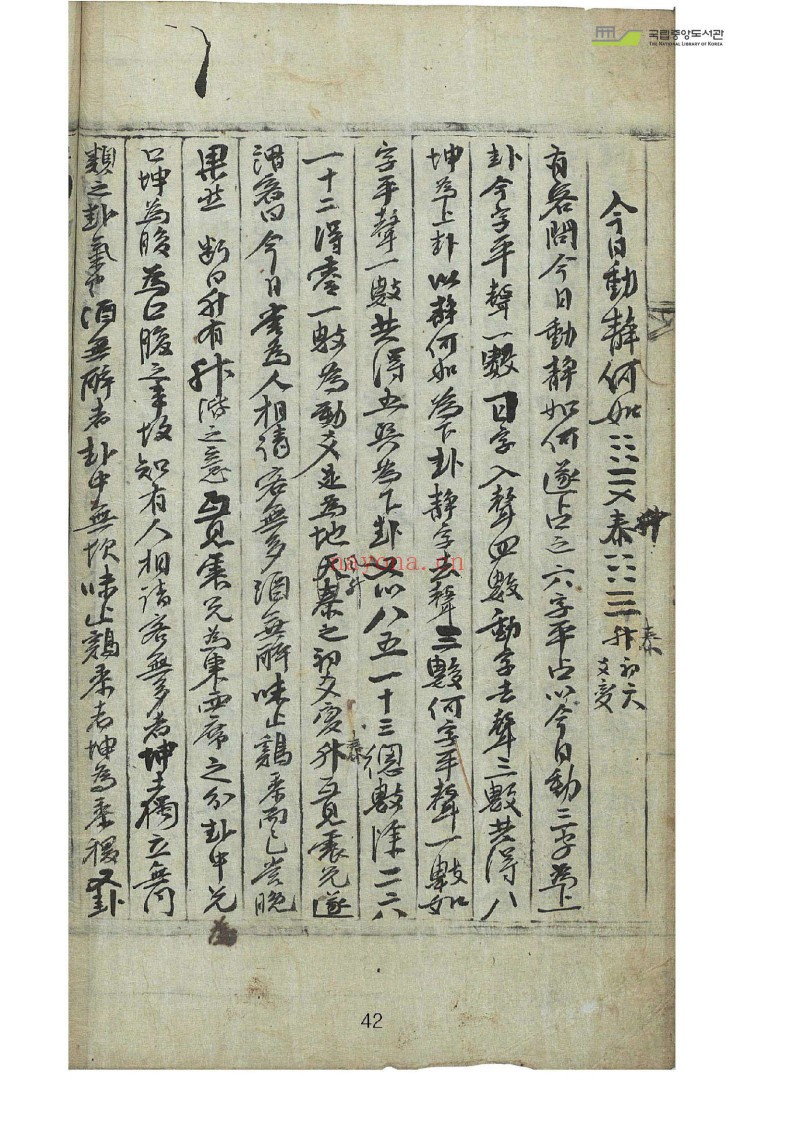 국립중앙도서관
THE NATIONAL LIBRARY OF KOREA
今日動靜何如 泰升 泰升初六爻變
有客問今日動靜如何遂占之六字平占以今日動三字爲上
卦今字平聲一數日字入聲四數動字去聲三數共得八
坤爲上卦以靜何如爲下卦靜字去聲三數何字平聲一數如
字平聲一數共得五巽爲下卦又以八五一十三總數除二六
一十二得零一數爲動爻是爲地天泰之初爻變升互見震兌遂
謂客曰今日當爲人相請客無多酒無醉味止鷄黍而已當晚
果然 斷曰升有升階之意互見震兌爲東西席之分卦中兌爲
口坤爲腹爲口腹之事故知有人相請客無多者坤土獨立無同
類之卦氣也酒無醉者卦中無坎味止鷄黍者坤爲黍稷又卦
nayona.cn
42